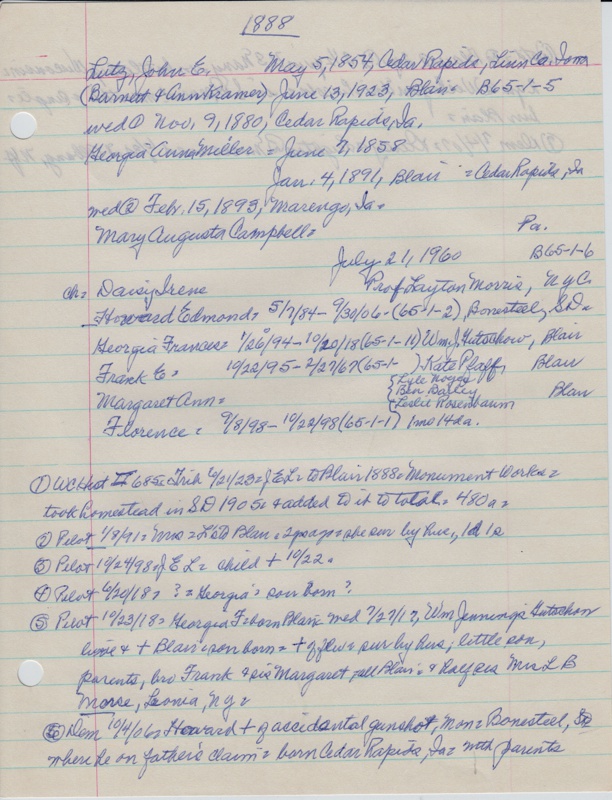 1888
Lutz, John E. May 5, 1854, Cedar Rapids, Linn Co. Iowa
(Barnett & Ann Kramer) June 13, 1923, Blair = B65-1-5
wed ① Nov. 9, 1880, Cedar Rapids, Ia.
Georgia Anna Miller = June 7, 1858
Jan. 4, 1891, Blair = Cedar Rapids, Ia
wed ② Feb. 15, 1893, Marengo, Ia =
Mary Augusta Campbell = Pa.
July 21, 1960 B65-1-6
ch = Daisy Irene Prof. Layton Morris, NYC
Howard Edmond = 5/7/84 - 9/30/06 - (65-1-2), Bonesteel, SD =
Georgia Frances = 1/26/94 - 10/20/18 (65-1-11) Wm J. Hutschow, Blair
Frank E = 10/22/95 - 2/27/67 (65-1- ) Kate Pfaff, Blair
Margaret Ann = {Lyle Noyes
{Ben Barley Blair
{Leslie Rosenbaum
Florence = 9/8/98 - 10/22/98 (65-1-1) 1mo 14da.
① WC Hist II 685 = Trib 6/21/23 = J E L = to Blair 1888 = Monument Works =
took homestead in SD 1905 = & added to it to total = 480a =
② Pilot 1/8/91 = Mrs = L to Blair = 2 yrs ago = she sur by hus, 1d 1s
③ Pilot 10/24/98 = J E L = child + 10/22 =
④ Pilot 6/20/18 = ? = Georgia's son born?
⑤ Pilot 10/23/18 = Georgia F = born Blair = wed 7/27/17, Wm Jennings Hutschow
live & + Blair = son born = + of flu = sur by hus, little son,
parents, bro Frank & sis Margaret, all Blair = & half sis Mrs L B
Morse, Leonia, NY =
⑥ Dem 10/4/06 = Howard + of accidental gunshot, Mon = Bonesteel, SD
where he on father's claim = born Cedar Rapids, Ia = with parents